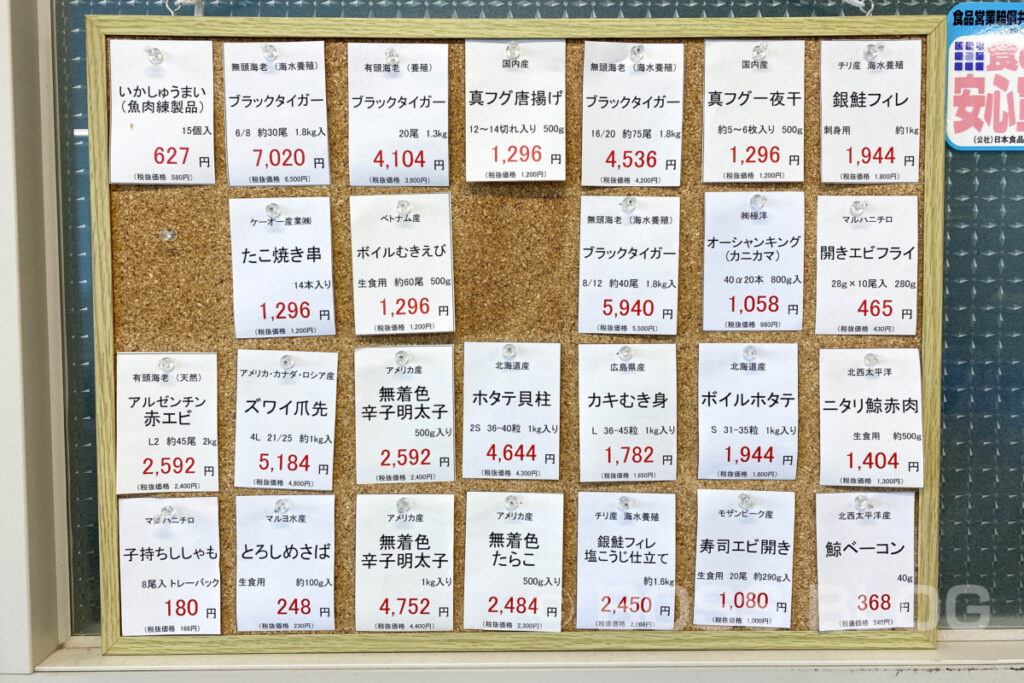 いかしゅうまい
(魚肉練製品)
15個入
627 円
(税抜価格 580円)
無頭海老 (海水養殖)
ブラックタイガー
6/8 約30尾 1.8kg入
7,020 円
(税抜価格 6,500円)
有頭海老 (養殖)
ブラックタイガー
20尾 1.3kg
4,104 円
(税抜価格 3,800円)
国内産
真フグ唐揚げ
12～14切れ入り 500g
1,296 円
(税抜価格 1,200円)
無頭海老 (海水養殖)
ブラックタイガー
16/20 約75尾 1.8kg
4,536 円
(税抜価格 4,200円)
国内産
真フグ一夜干
約5～6枚入り 500g
1,296 円
(税抜価格 1,200円)
チリ産 海水養殖
銀鮭フィレ
刺身用 約1kg
1,944 円
(税抜価格 1,800円)
食品営業賠償
食
安心
(公社)日本食品
ケーオー産業㈱
たこ焼き串
14本入り
1,296 円
(税抜価格 1,200円)
ベトナム産
ボイルむきえび
生食用 約60尾 500g
1,296 円
(税抜価格 1,200円)
無頭海老 (海水養殖)
ブラックタイガー
8/12 約40尾 1.8kg入
5,940 円
(税抜価格 5,500円)
㈱極洋
オーシャンキング
(カニカマ)
40α20本 800g入
1,058 円
(税抜価格 980円)
マルハニチロ
開きエビフライ
28g×10尾入 280g
465 円
(税抜価格 430円)
有頭海老 (天然)
アルゼンチン
赤エビ
L2 約45尾 2kg
2,592 円
(税抜価格 2,400円)
アメリカ・カナダ・ロシア産
ズワイ爪先
4L 21/25 約1kg入
5,184 円
(税抜価格 4,800円)
アメリカ産
無着色
辛子明太子
500g入り
2,592 円
(税抜価格 2,400円)
北海道産
ホタテ貝柱
2S 36-40粒 1kg入り
4,644 円
(税抜価格 4,300円)
広島県産
カキむき身
L 36-45粒 1kg入り
1,782 円
(税抜価格 1,650円)
北海道産
ボイルホタテ
S 31-35粒 1kg入り
1,944 円
(税抜価格 1,800円)
北西太平洋
ニタリ鯨赤肉
生食用 約500g
1,404 円
(税抜価格 1,300円)
マルハニチロ
子持ちししゃも
8尾入 トレーパック
180 円
(税抜価格 166円)
マルヨ水産
とろしめさば
生食用 約100g入
248 円
(税抜価格 230円)
アメリカ産
無着色
辛子明太子
1kg入り
4,752 円
(税抜価格 4,400円)
アメリカ産
無着色
たらこ
500g入り
2,484 円
(税抜価格 2,300円)
チリ産 海水養殖
銀鮭フィレ
塩こうじ仕立て
約1.6kg
2,450 円
(税抜価格 2,268円)
モザンビーク産
寿司エビ開き
生食用 20尾 約290g入
1,080 円
(税抜価格 1,000円)
北西太平洋産
鯨ベーコン
40g
368 円
(税抜価格 340円)
BLOG